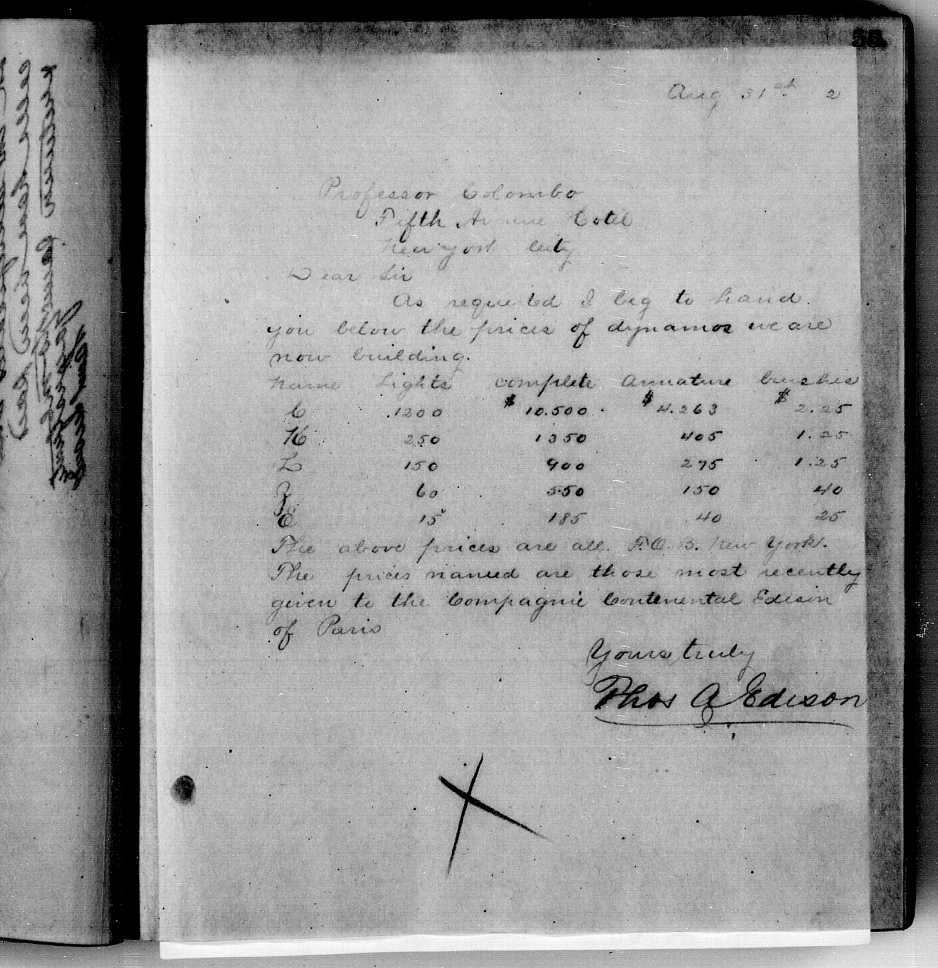 56.
Aug 31st 2
Professor Colombo
Fifth Avenue Hotel
New York City
Dear Sir
As requested I beg to hand
you below the prices of dynamos we are
now building.
Name Lights complete Armature brushes
C 1200 $10.500 $4.263 $2.25
K 250 1350 405 1.25
L 150 900 275 1.25
Z 60 550 150 40
E 15 185 40 25
The above prices are all. F.O.B. New York.
The prices named are those most recently
given to the Compagnie Continental Edison
of Paris
Yours truly
Thos A Edison